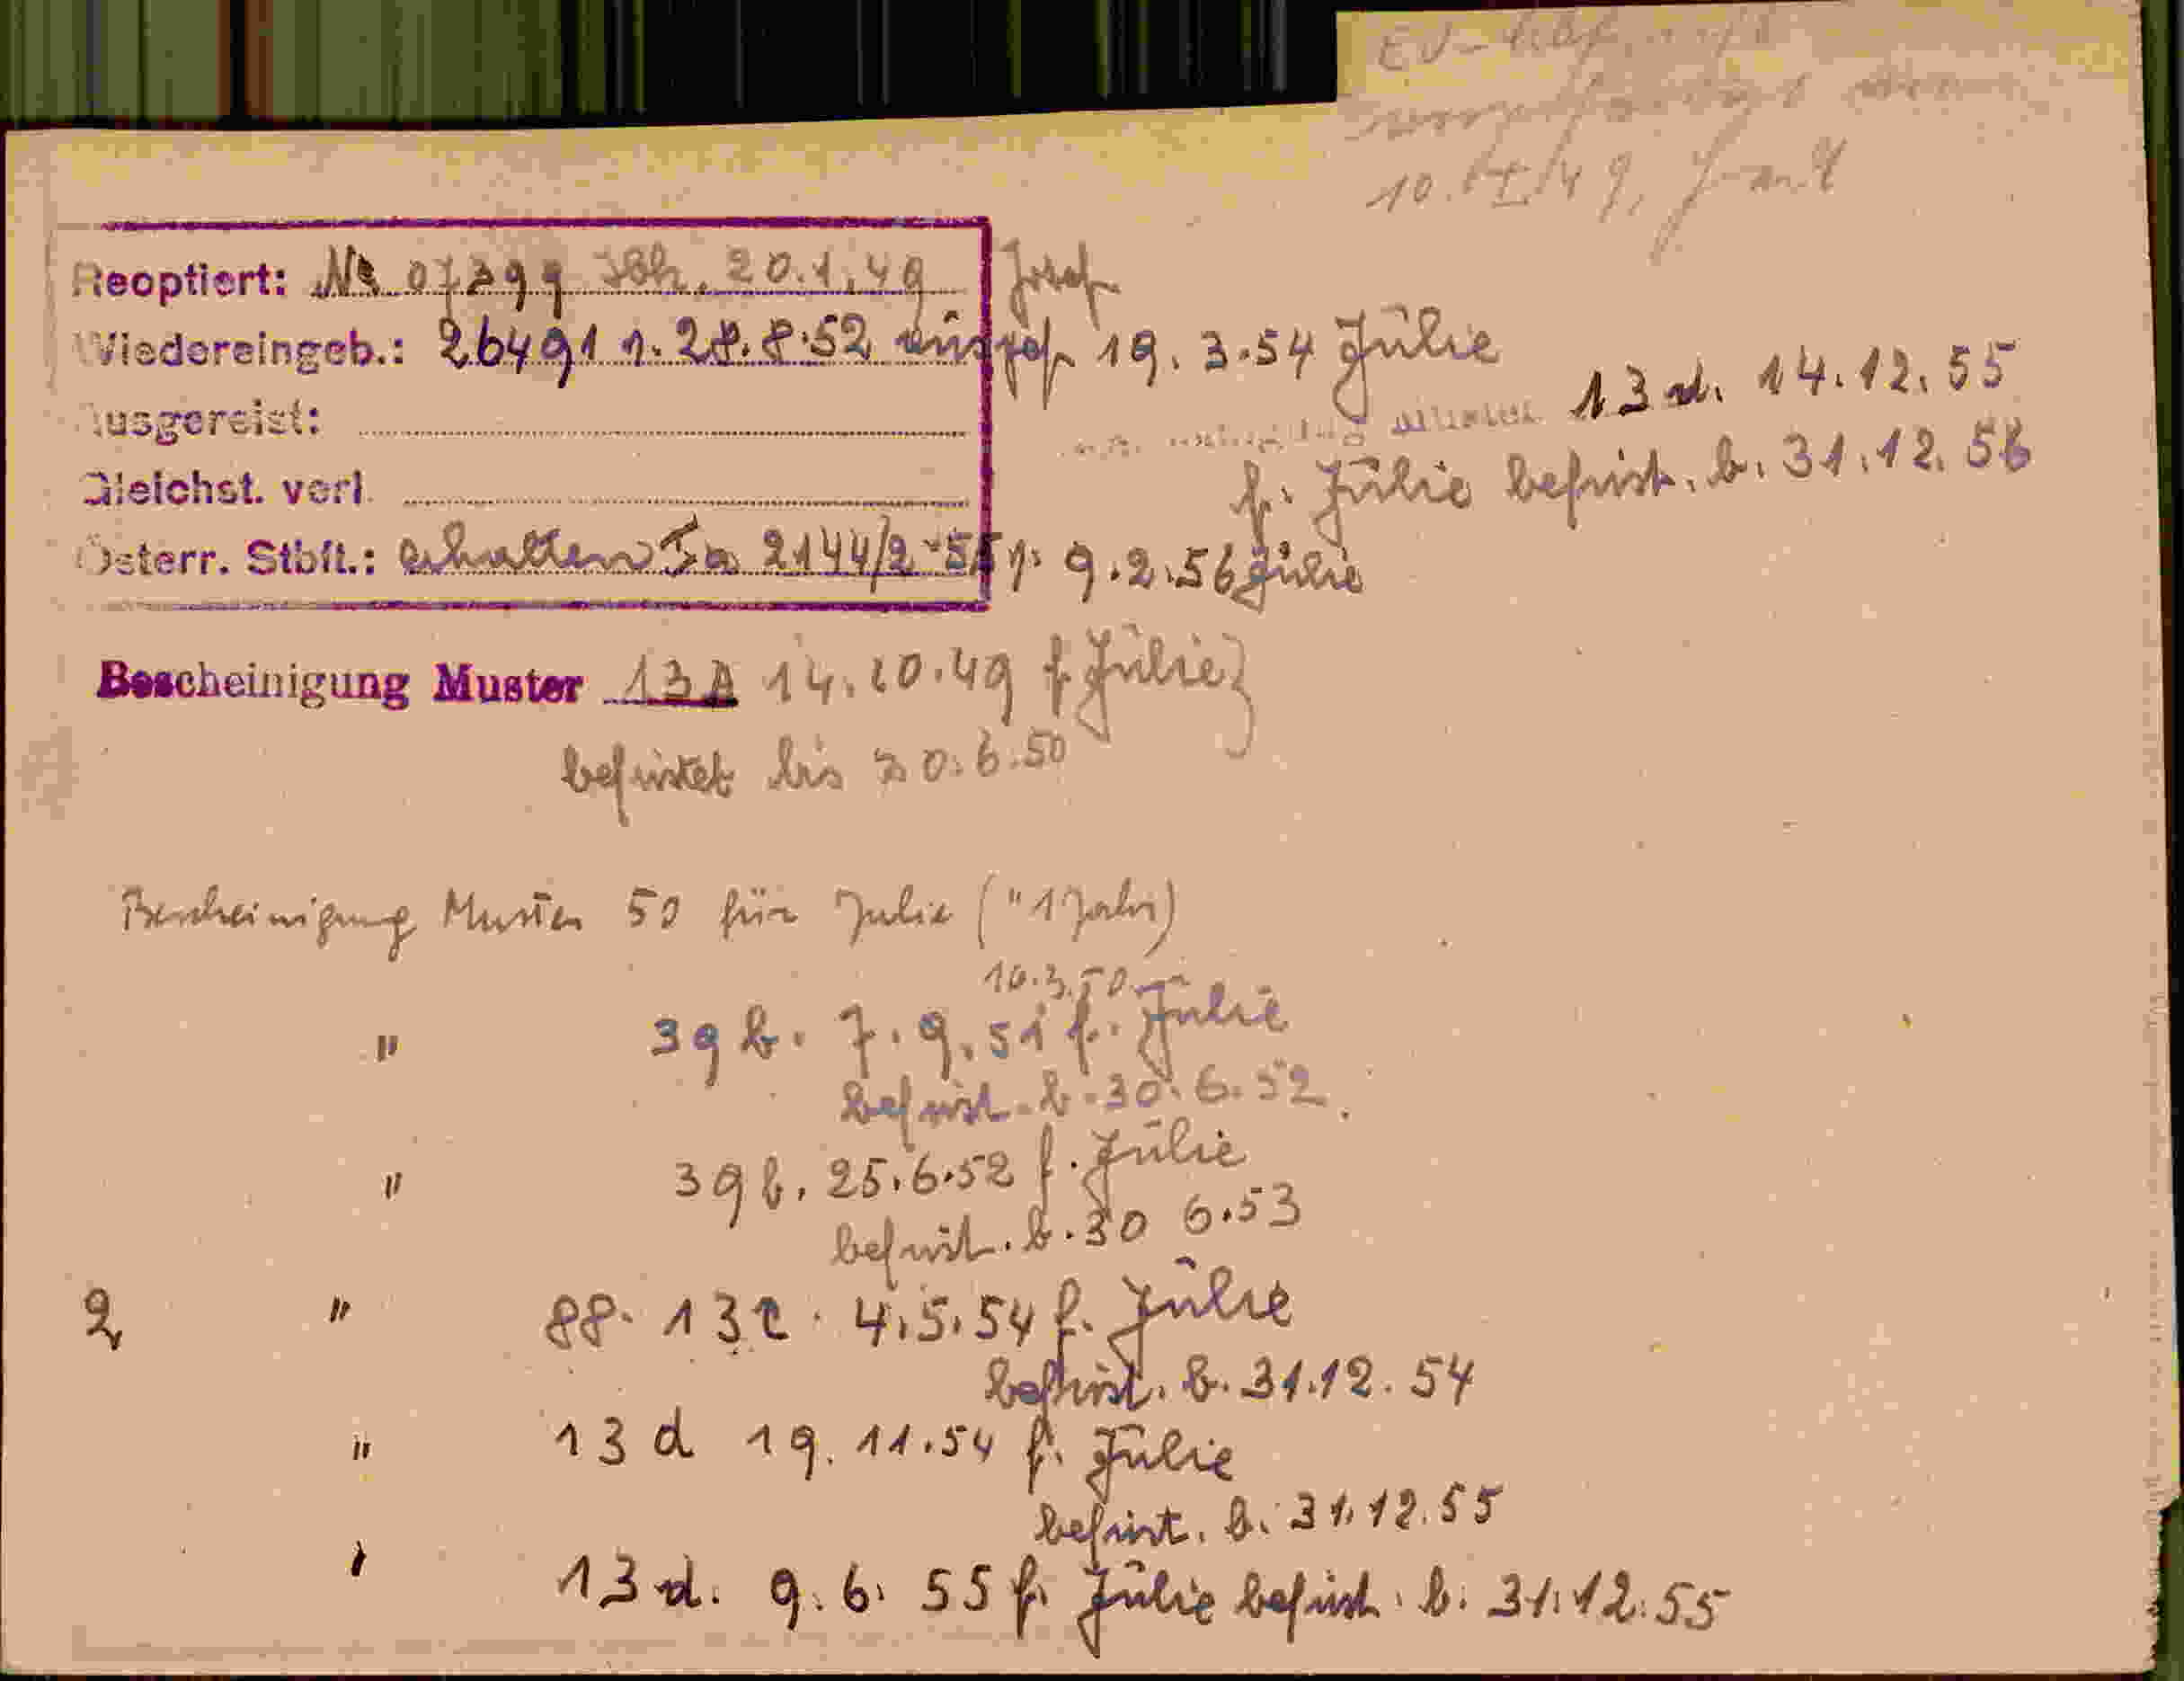 10. IX/49,
Reoptiert: № 07399 Ibk. 20.1.49 Josef
Wiedereingeb.: 26491 v. 28.8.52 ausgef. 19.3.54 Julie
13 d. 14.12.55
Ausgereist:
f. Julie befrist. b. 31.12.56
Gleichst. verl.
Österr. Stbft.: erhalten Ia 2144/2-55 v. 9.2.56 Julie
Bescheinigung Muster 13A 14.10.49 f. Julie
befristet bis 30.6.50
Bescheinigung Muster 50 für Julie (" 1 Jahr)
10.3.50
" 39 b. 7.9.51 f. Julie
befrist. b. 30.6.52.
" 39 b. 25.6.52 f. Julie
befrist. b. 30 6.53
2 " 88. 13c. 4.5.54 f. Julie
befrist. b. 31.12.54
" 13 d 19.11.54 f. Julie
befrist. b. 31.12.55
" 13 d. 9.6.55 f. Julie befrist. b. 31.12.55